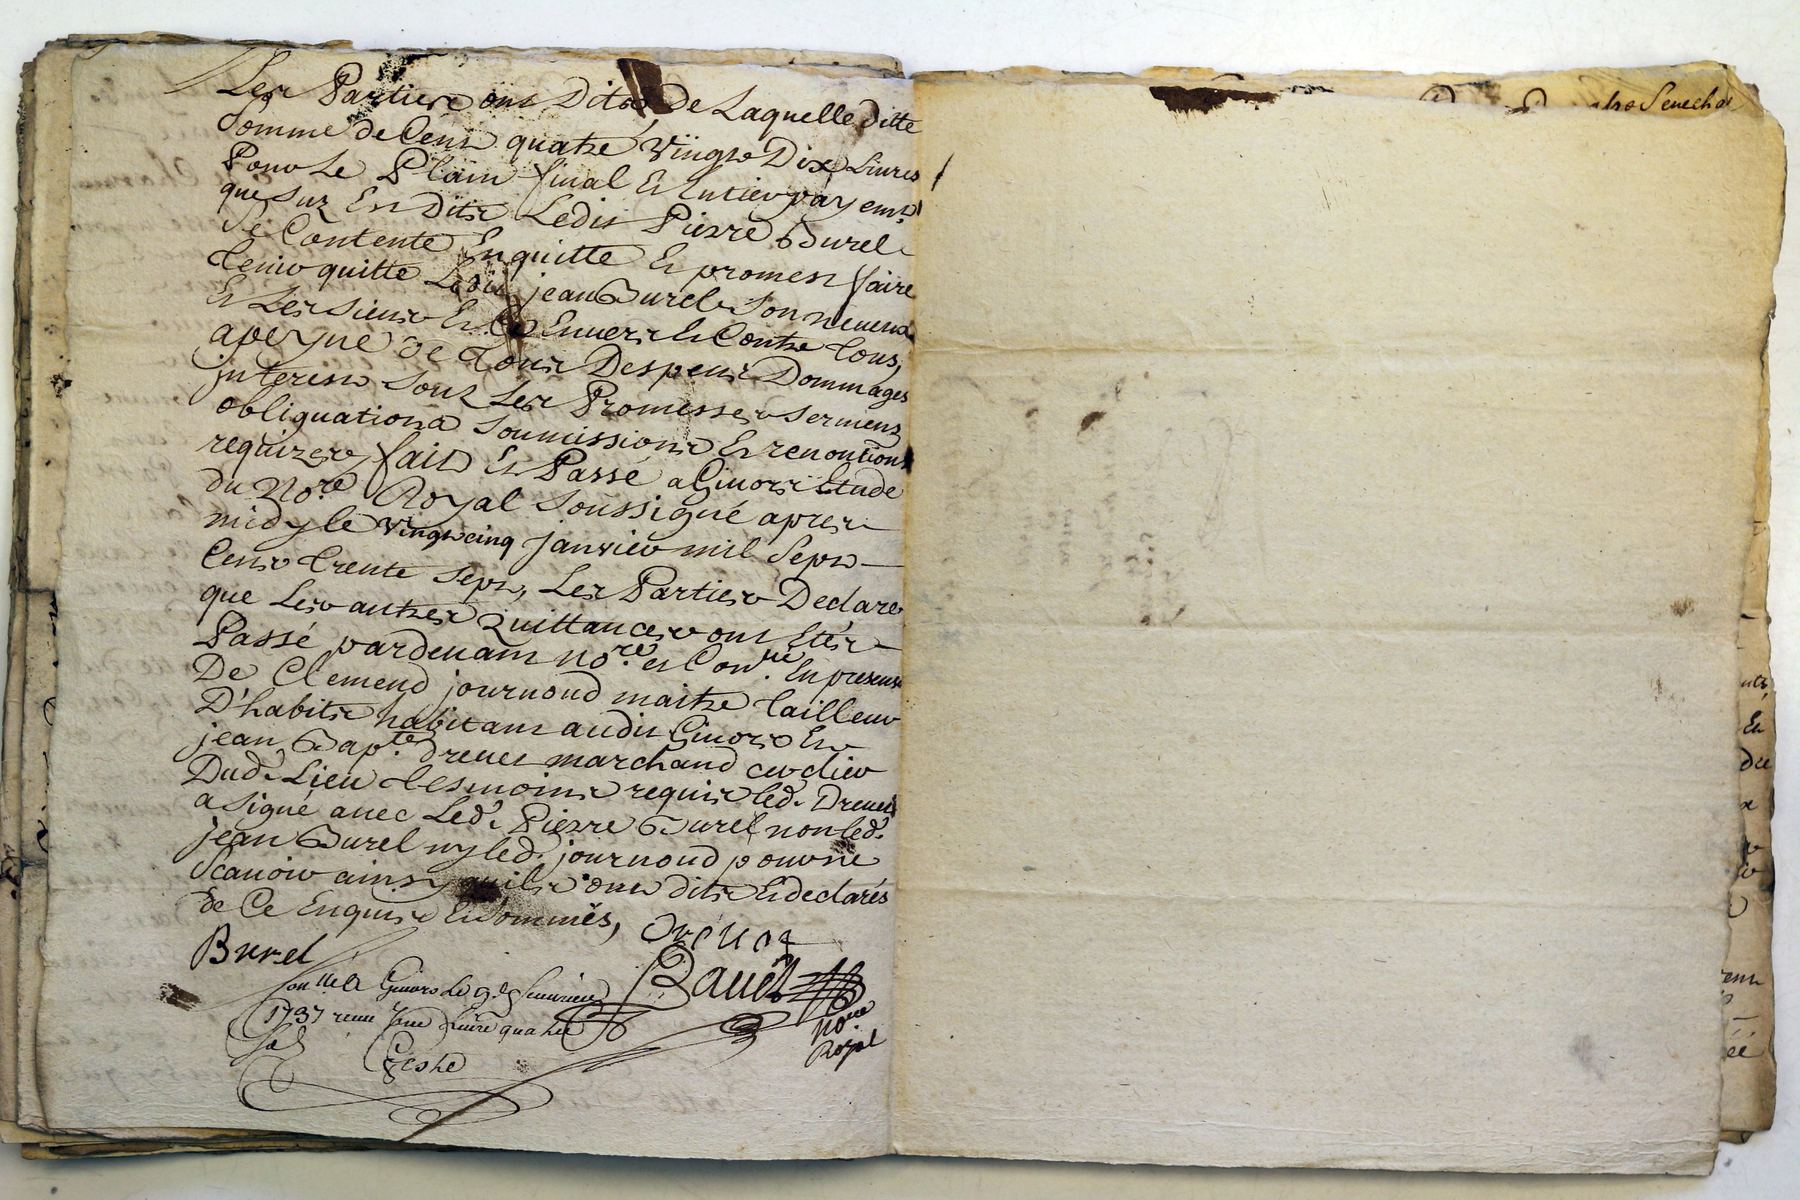 Les Parties ont Dits de Laquelle ditte
Somme de Cent quatre Vingts Dix Livres
Pour Le Plain final Et Entier payemt
que Sur Est Dits Ledit Pierre Burel
Se Contente En quitte Et promest faire
tenir quitte Ledit jean Burel Son neveux
Et Les Siens Et Ce Envers Et Contre tous,
apeyne de Tous Despens Dommages
jnterests Soux Les Promesses Serments
obliguations Soumissions Et renontions
requizes, fait Et Passé a Givors Etude
du No.re Royal Soussigné apres
midy le Vingt cinq janvier mil Sept
Cents trente Sept, Les Parties Declare
que Les autres Quittances ont Etés
Passé pardevant no.re et Con.lle En presence
De Clemend journoud maitre tailleur
D'habits habitant audit Givors Et
jean Bap.te drevet marchand cordier
Dud. Lieu tesmoins requis led. Drevet
a Signé avec Led. Pierre Burel non led.
jean Burel ny led. journoud pour ne
Scavoir ainsy quils ont dits Et declarés
de Ce Enquis Et Sommés,
Drevet
Burel
Bavet
No.re
Royal
Con.lle a Givors Le 9.e fevrier
1737 receu
Senechal